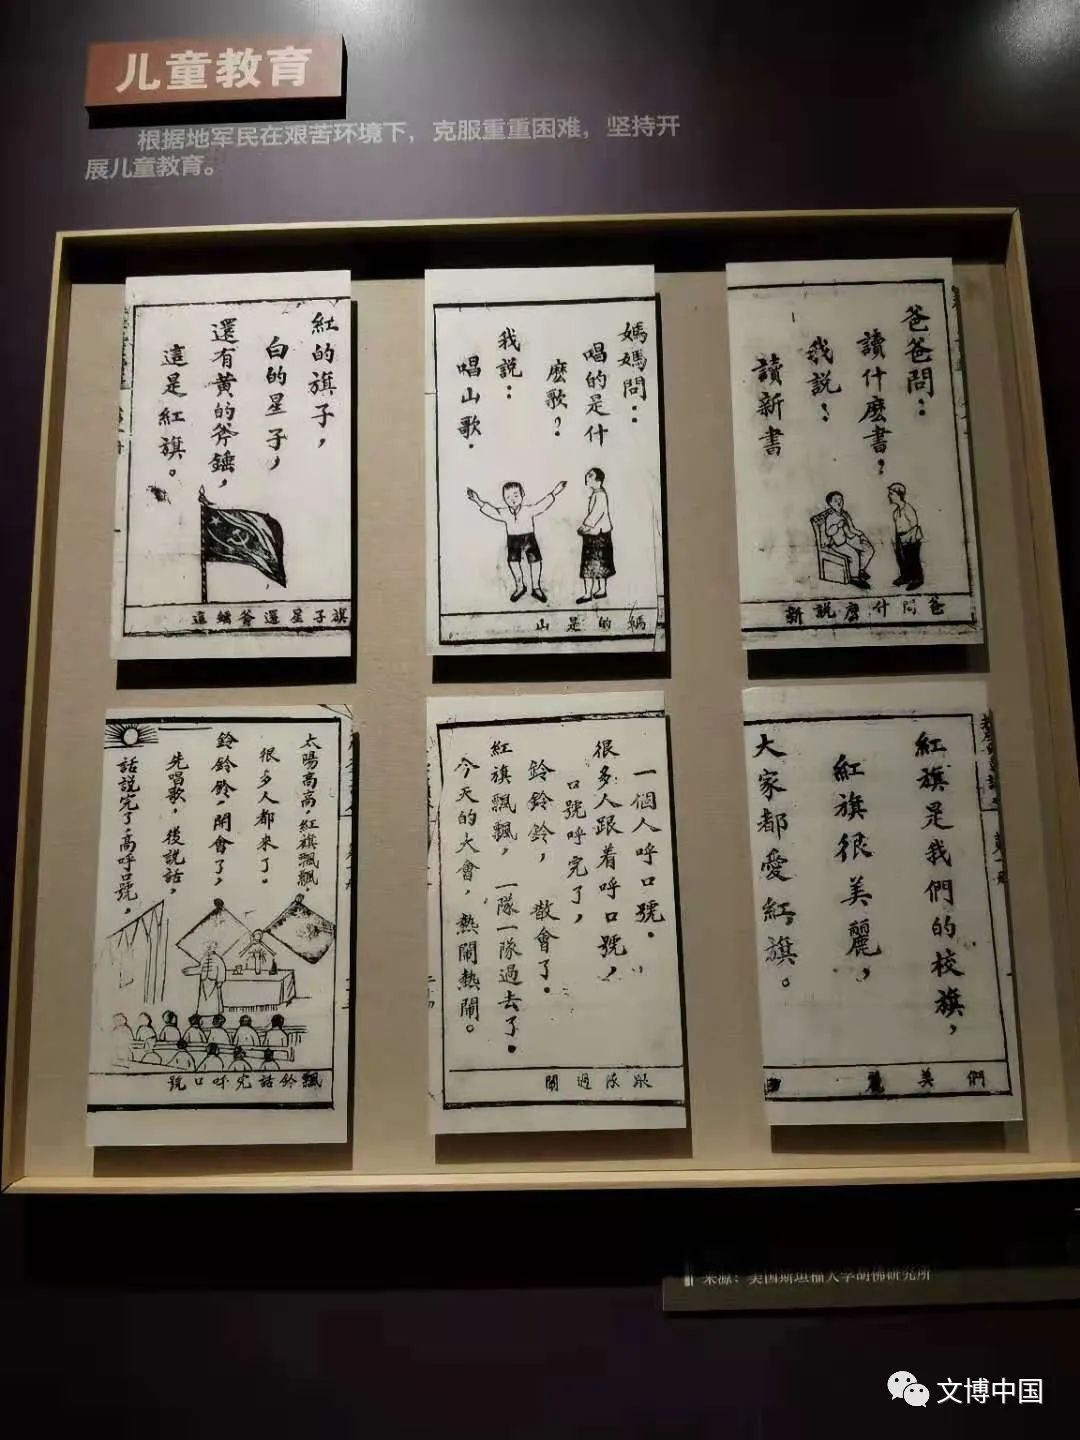 儿童教育
根据地军民在艰苦环境下，克服重重困难，坚持开
展儿童教育。
紅的旗子，
白的星子，
還有黃的斧錘，
這是紅旗。
旗子星還斧錘這
媽媽問：
唱的是什
麽歌？
我説：
唱山歌．
媽的是山
爸爸問：
讀什麽書？
我説：
讀新書
爸問什麽説新
太陽高高，紅旗飄飄
很多人都來了．
鈴鈴鈴，開會了，
先唱歌，後説話，
話説完了，高呼口號，
飄鈴話完呼口號
一個人呼口號．
很多人跟着呼口號，
口號呼完了，
鈴鈴鈴，散會了．
紅旗飄飄，一隊一隊過去了．
今天的大會，熱鬧熱鬧。
跟隊過鬧
紅旗是我們的校旗，
紅旗很美麗，
大家都愛紅旗。
們美麗
来源：美国斯坦福大学胡佛研究所
文博中国